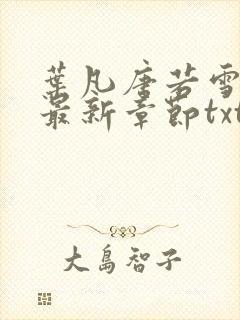 葉凡唐若雪
最新章節txt
大島智子